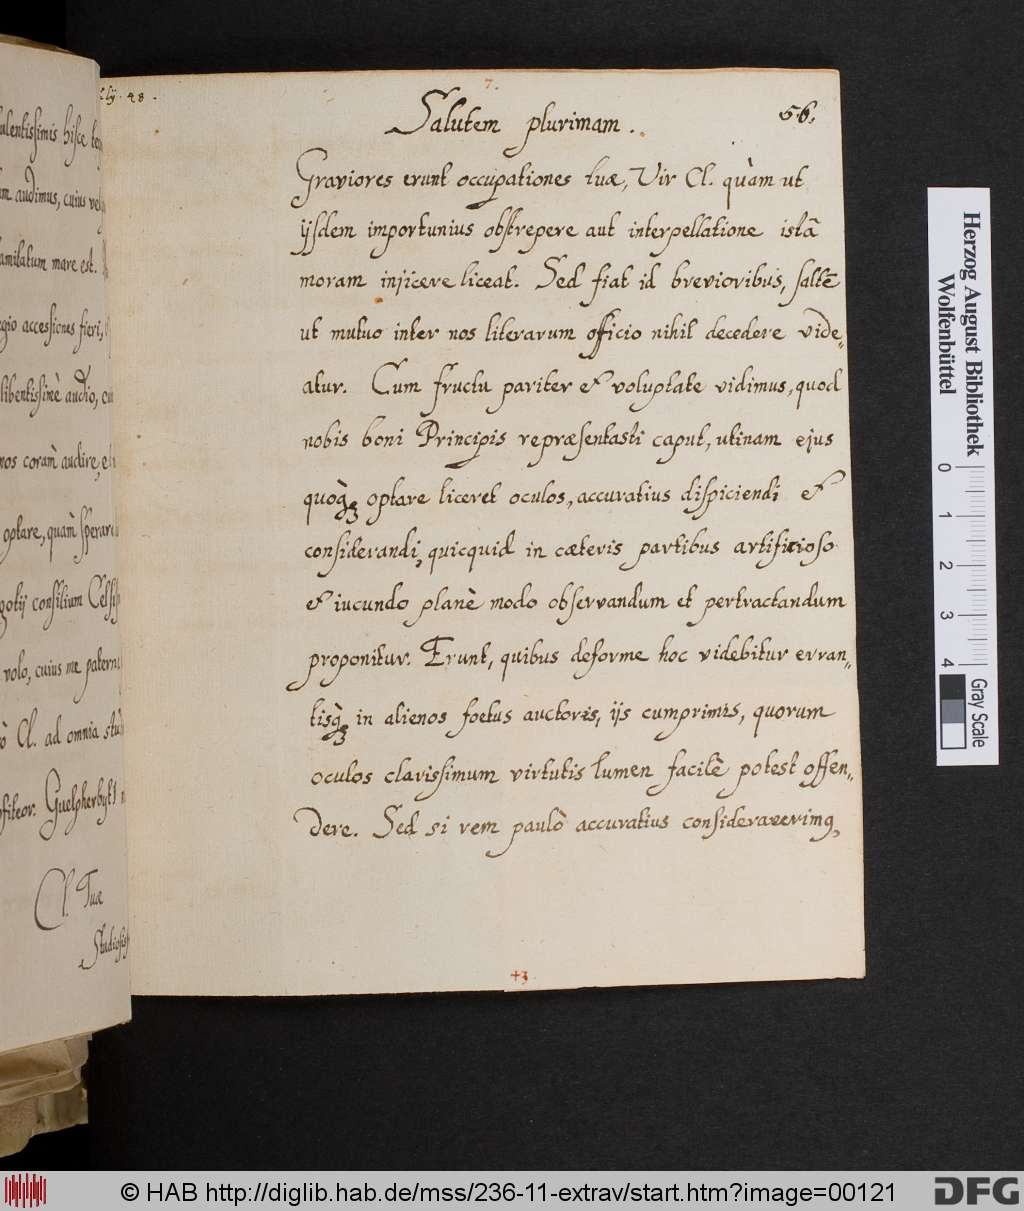 ulentissimis hisce
m audimus, cuius
amitatum mare est.
gio accessiones fieri,
libentissimè audio,
nos coram audire,
optare, quàm
gotij consilium
volo, cuius me
Cl. ad omnia
fiteor. Guelpherbyti
Cl. Tuæ
48.
7.
56.
Salutem plurimam.
Graviores erunt occupationes tuæ, Vir Cl. quàm ut
ijsdem importunius obstrepere aut interpellatione istâ
moram injicere liceat. Sed fiat id brevioribus, saltẽ
ut mutuo inter nos literarum officio nihil decedere vide„
atur. Cum fructu pariter et voluptate vidimus, quod
nobis boni Principis repræsentasti caput, utinam ejus
quoq₃ optare liceret oculos, accuratius dispiciendi et
considerandi, quicquid in cæteris partibus artificioso
et iucundo planè modo observandum et pertractandum
proponitur. Erunt, quibus deforme hoc videbitur erran„
tisq₃ in alienos foetus auctoris, ijs cumprimis, quorum
oculos clarissimum virtutis lumen facilè potest offen„
dere. Sed si rem paulò accuratius consideraverimꝰ,
+3
Herzog August Bibliothek
Wolfenbüttel
0 1 2 3 4
Gray Scale
© HAB http://diglib.hab.de/mss/236-11-extrav/start.htm?image=00121
DFG